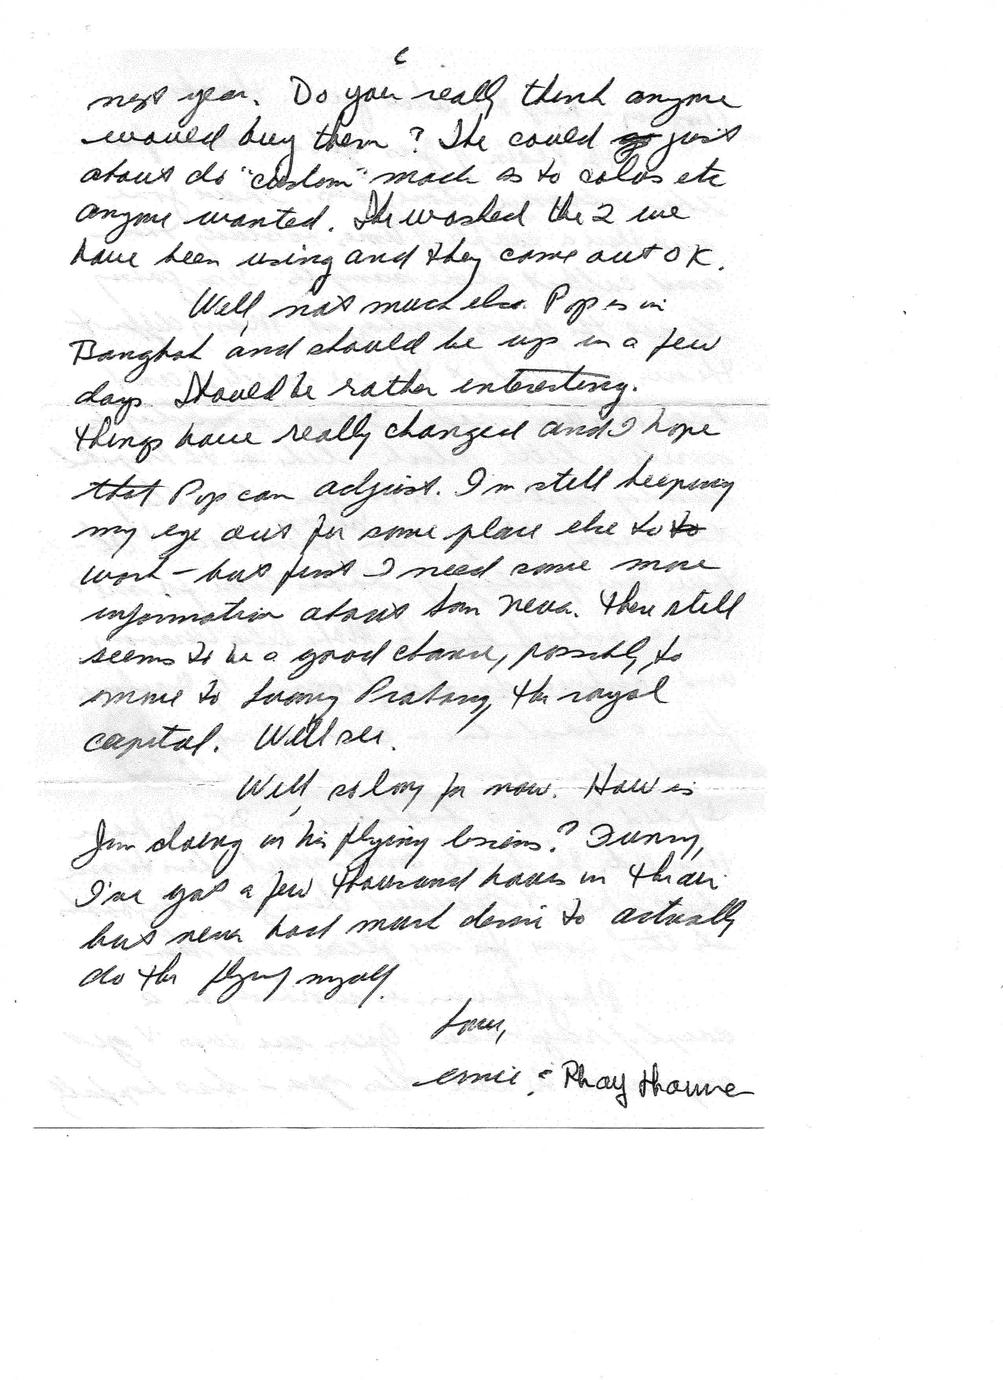 6
next year. Do you really think anyone
would buy them? She could just
about do "custom" made as to colors etc
anyone wanted. She washed the 2 we
have been using and they came out OK.
Well, not much else. Pop is in
Bangkok and should be up in a few
days. Should be rather interesting.
Things have really changed and I hope
that Pop can adjust. I'm still keeping
my eye out for some place else to to
work - but first I need some more
information about Nam Neua. There still
seems to be a good chance, possibly, to
move to Luang Prabang, the royal
capital. Will see.
Well, so long for now. How is
Jim doing in his flying lessons? Funny,
I've got a few thousand hours in the air
but never had much desire to actually
do the flying myself.
Love,
Ernie & Phay Thoune